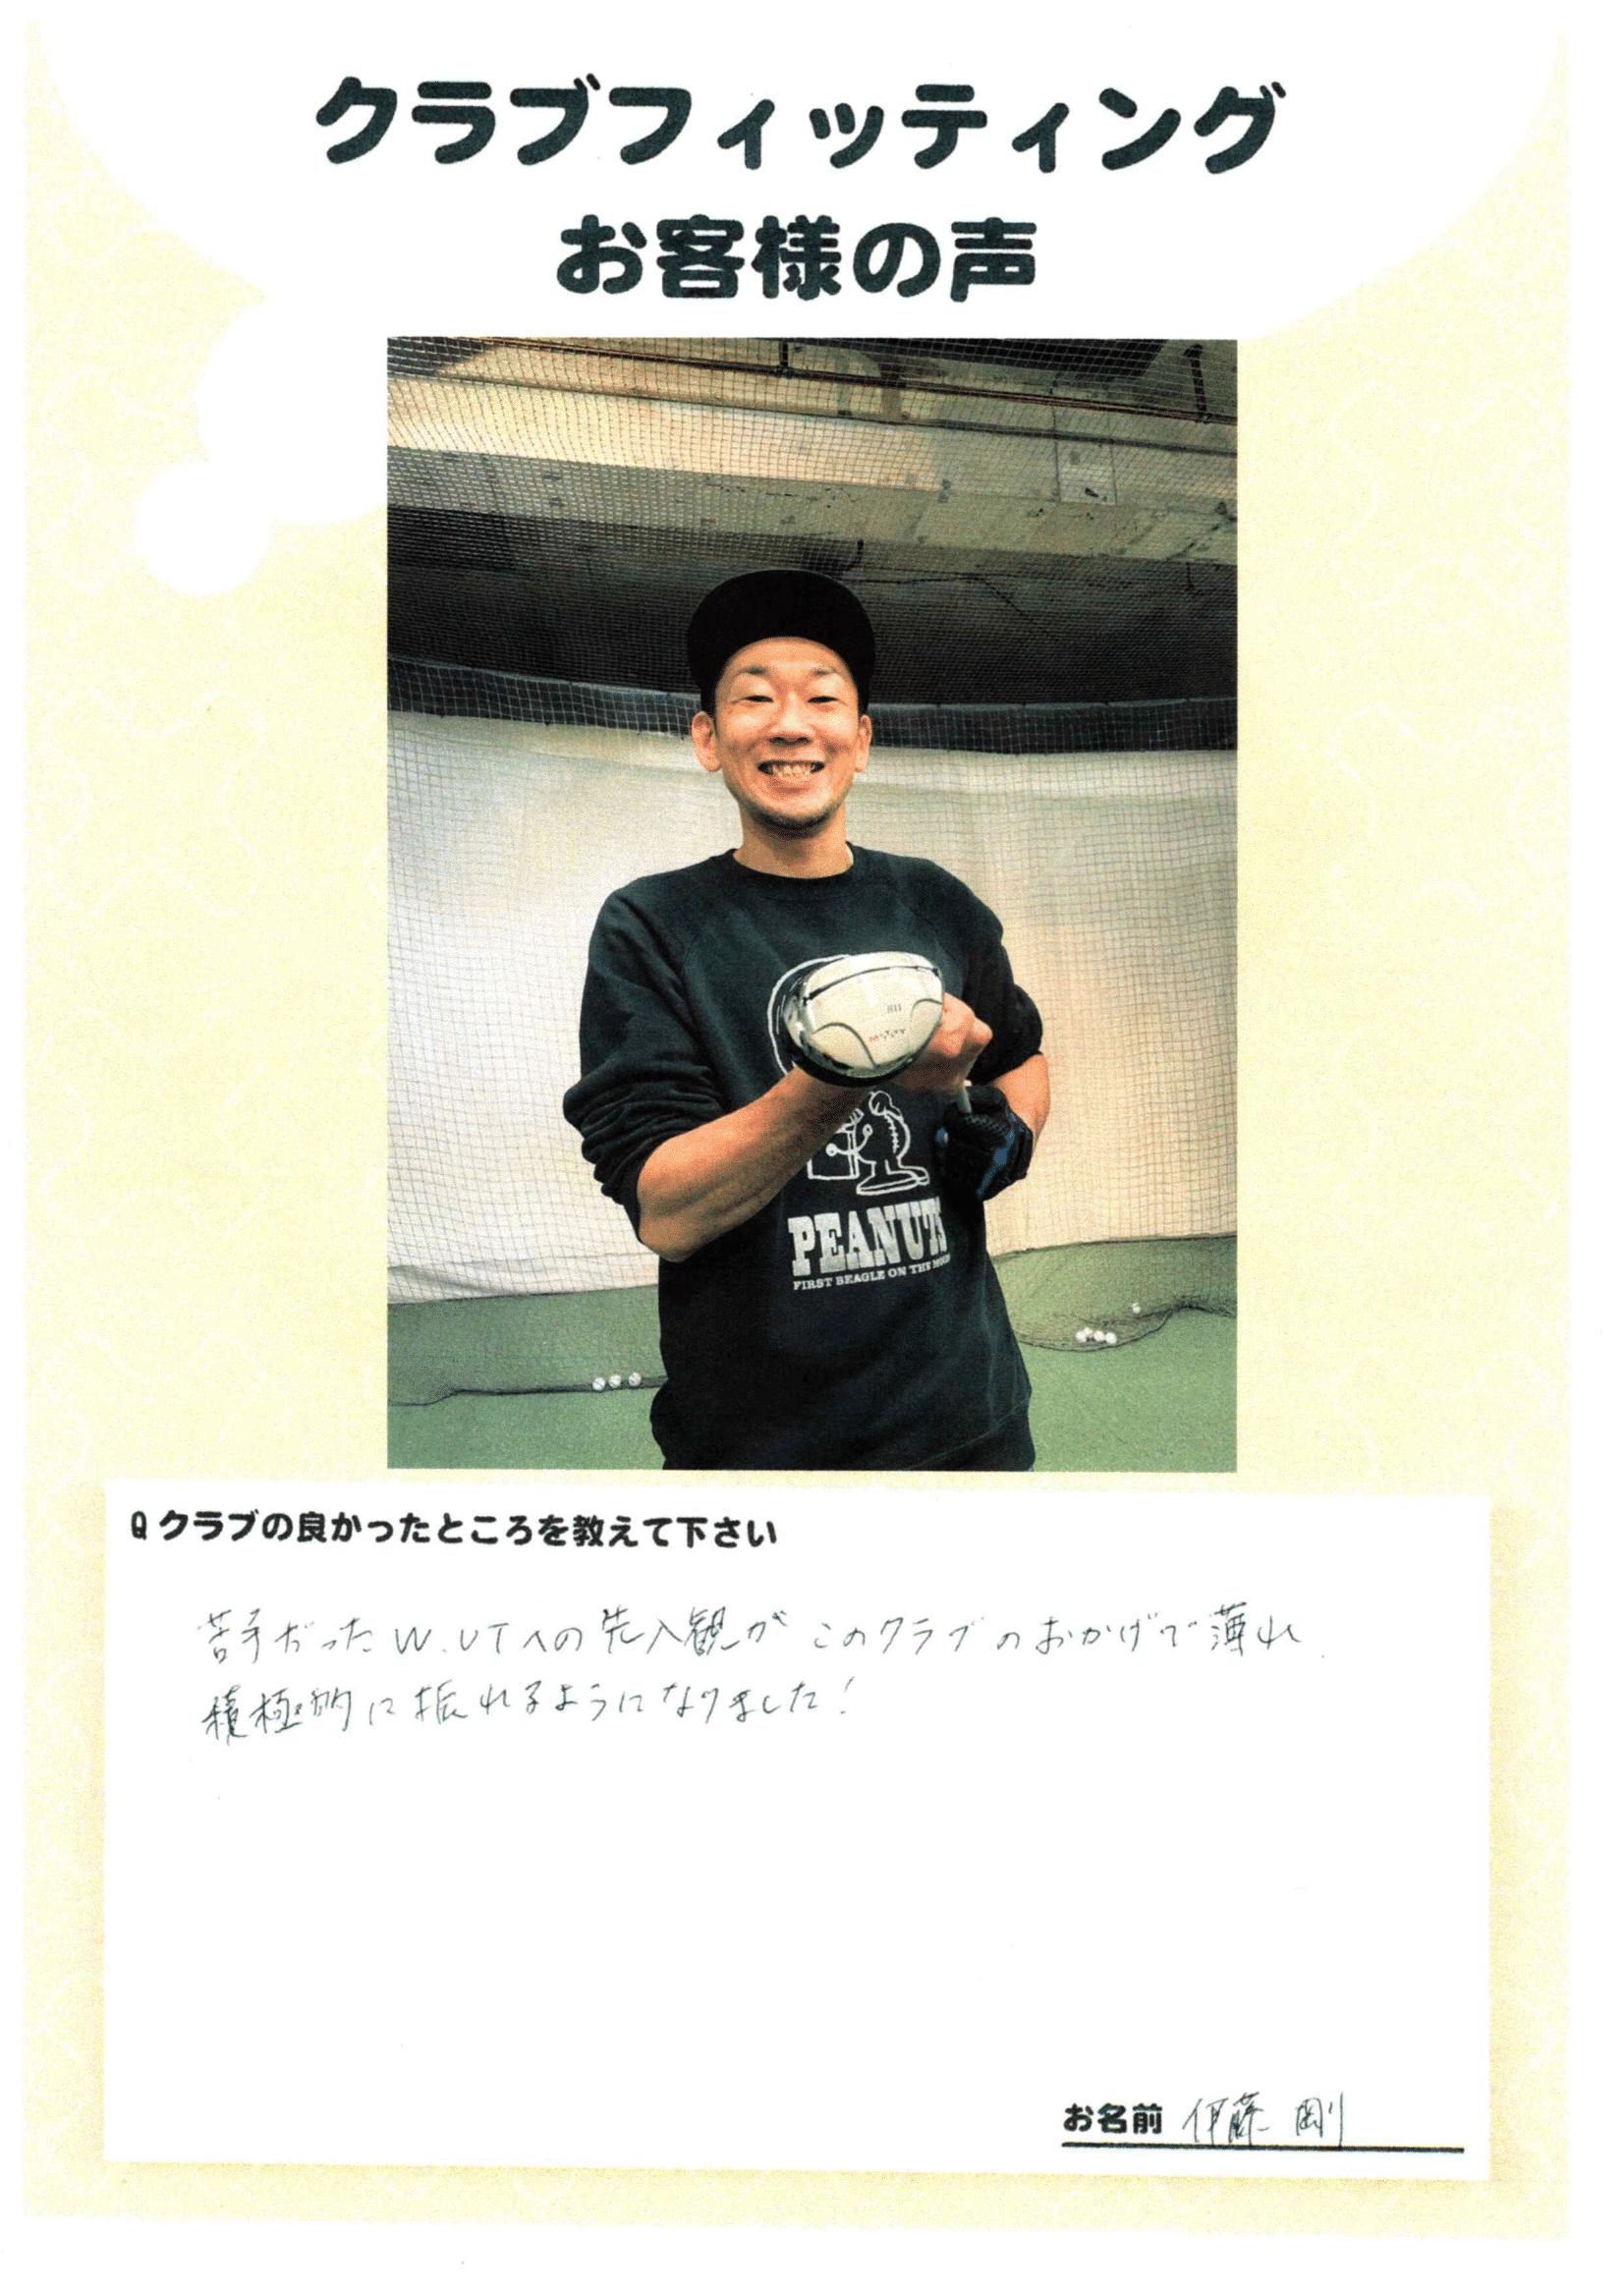 クラブフィッティング
お客様の声
811
PEANUTS
FIRST BEAGLE ON THE MOON
Q クラブの良かったところを教えて下さい
苦手だったW.UTへの先入観がこのクラブのおかげで薄れ
積極的に振れるようになりました!
お名前 伊藤 剛